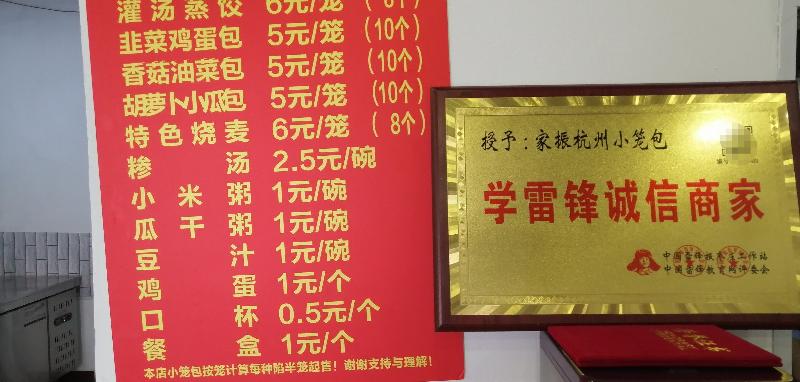 灌汤蒸饺 6元/笼 (8个)
韭菜鸡蛋包 5元/笼 (10个)
香菇油菜包 5元/笼 (10个)
胡萝卜小瓜包 5元/笼 (10个)
特色烧麦 6元/笼 (8个)
糁汤 2.5元/碗
小米粥 1元/碗
瓜干粥 1元/碗
豆汁 1元/碗
鸡蛋 1元/个
口杯 0.5元/个
餐盒 1元/个
本店小笼包按笼计算每种馅半笼起售！谢谢支持与理解！
授予：家振杭州小笼包
学雷锋诚信商家
中国雷锋
工作站
中国雷锋教育网评委会